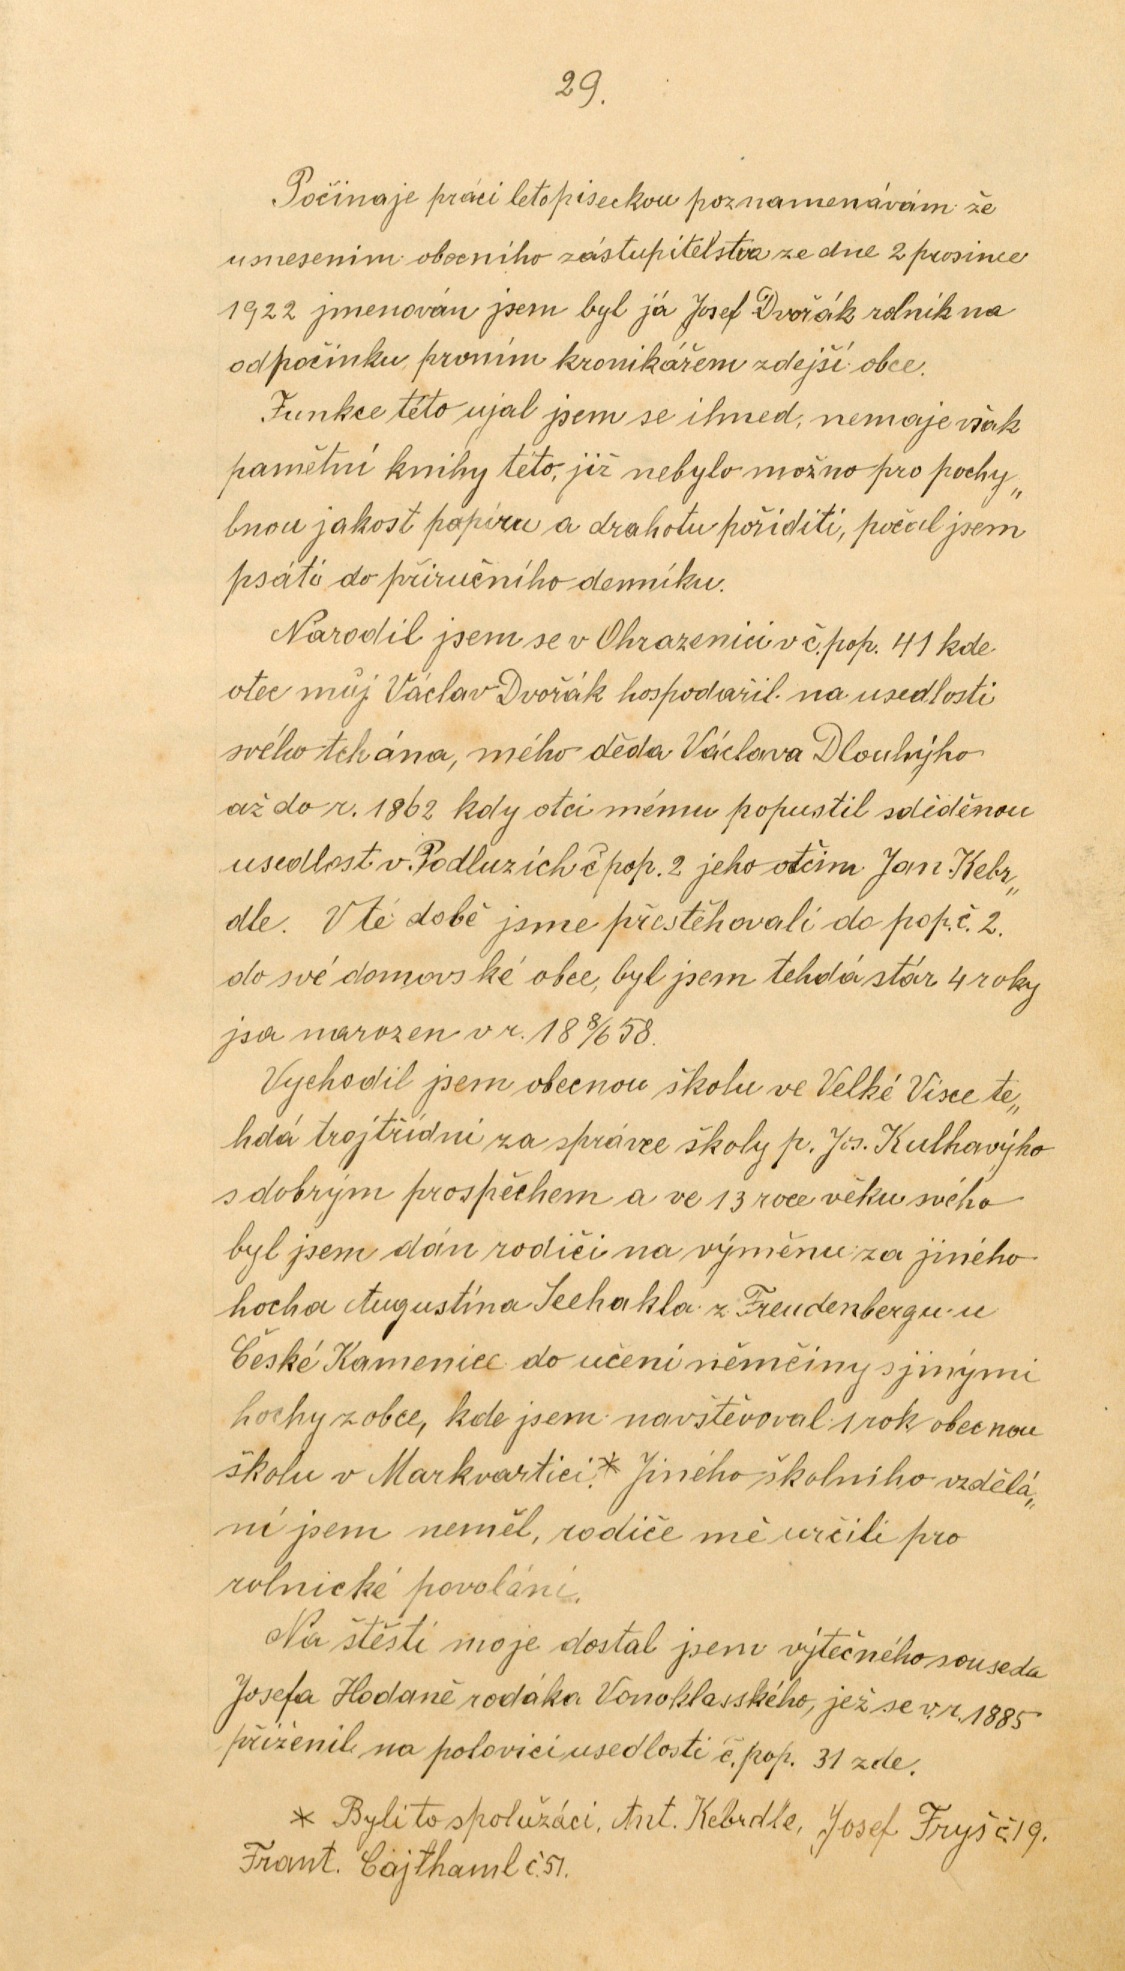 29.
Počínaje práci letopiseckou poznamenávám že
usnesením obecního zástupitelstva ze dne 2 prosince
1922 jmenován jsem byl já Josef Dvořák rolník na
odpočinku prvním kronikářem zdejší obce.
Funkce této ujal jsem se ihned, nemaje však
pamětní knihy této, již nebylo možno pro pochy„
bnou jakost papíru a drahotu poříditi, počal jsem
psáti do příručního denníku.
Narodil jsem se v Ohrazenici v č. pop. 41 kde
otec můj Václav Dvořák hospodařil na usedlosti
svého tchána, mého děda Václava Dlouhýho
až do r. 1862 kdy otci mému popustil sděděnou
usedlost v Podluzích č pop. 2 jeho otčím Jan Kebr„
dle. V té době jsme přestěhovali do pop. č. 2.
do své domovské obce, byl jsem tehdá stár 4 roky
jsa narozen v r. 18 8/6 58.
Vychodil jsem obecnou školu ve Velké Visce te„
hdá trojtřídní za správce školy p. Jos. Kulhavýho
s dobrým prospěchem a ve 13 roce věku svého
byl jsem dán rodiči na výměnu za jiného
hocha Augustína Seehakla z Freudenbergu u
České Kamenice do učení němčiny s jinými
hochy z obce, kde jsem navštěvoval 1 rok obecnou
školu v Markvartici.* Jiného školního vzdělá„
ní jsem neměl, rodiče mě určili pro
rolnické povolání.
Na štěstí moje dostal jsem výtečného souseda
Josefa Hodaně rodáka Vonoklasského, jež se v. r. 1885
přiženil na polovici usedlosti č. pop. 31 zde.
* Byli to spolužáci, Ant. Kebrdle, Josef Fryš č. 19.
Frant. Cajthaml č. 51.